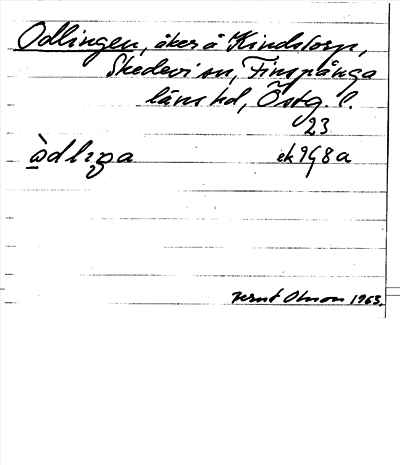 Odlingen, åker å Kindstorp,
Skedevi sn, Finspånga
läns hd, Östg. l.
23
ek 9G8a
Bernt Olsson 1963.